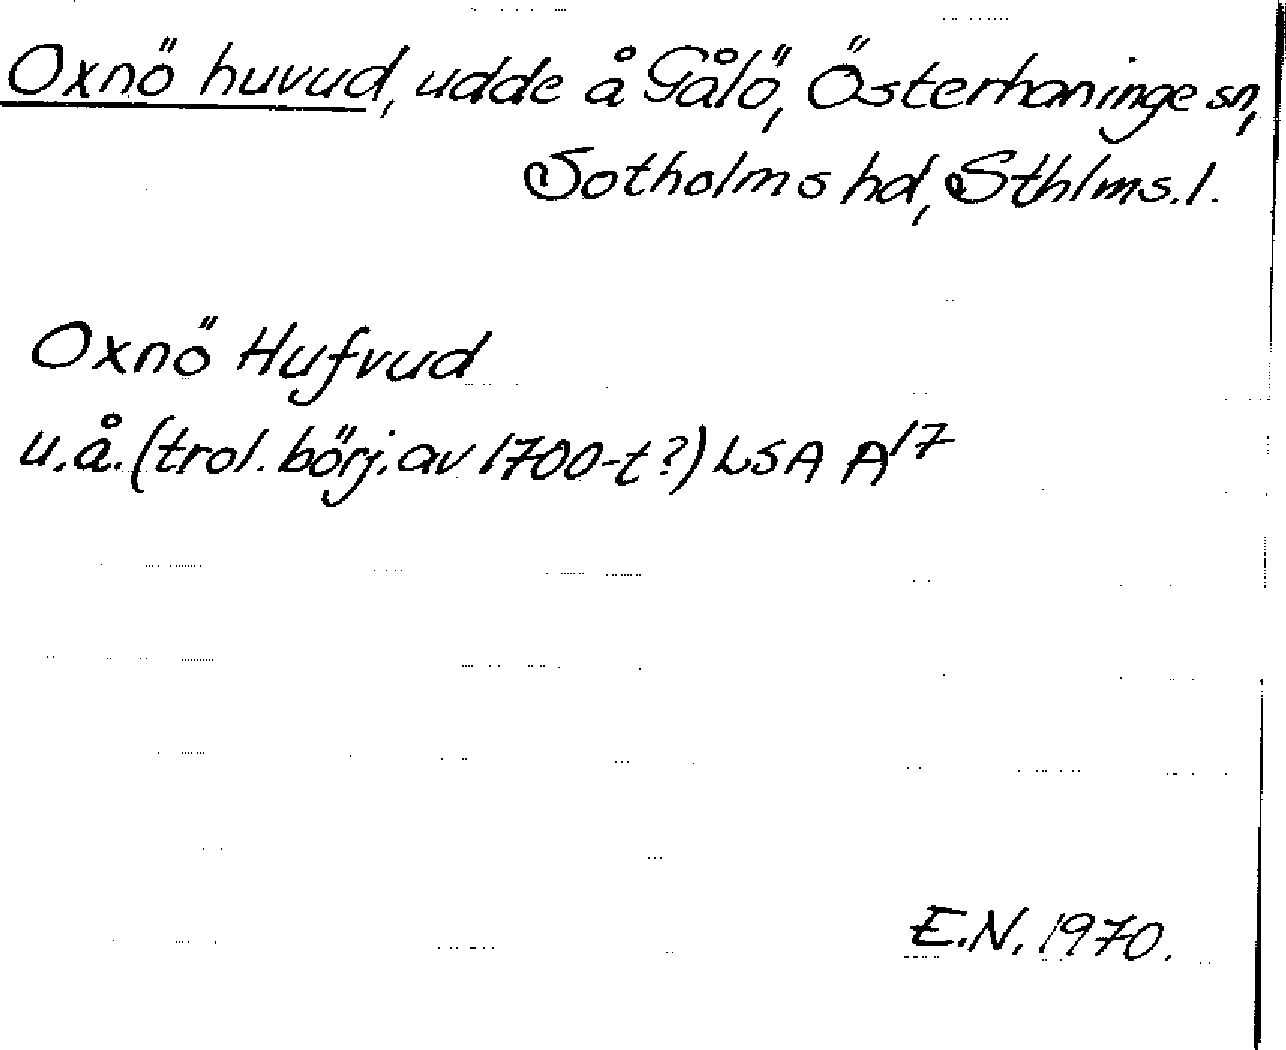 Oxnö huvud, udde å Gålö, Österhaninge sn,
Sotholms hd, Sthlms. l.
Oxnö Hufvud
u.å. (trol. börj. av 1700-t?) LSA A17
E.N. 1970.